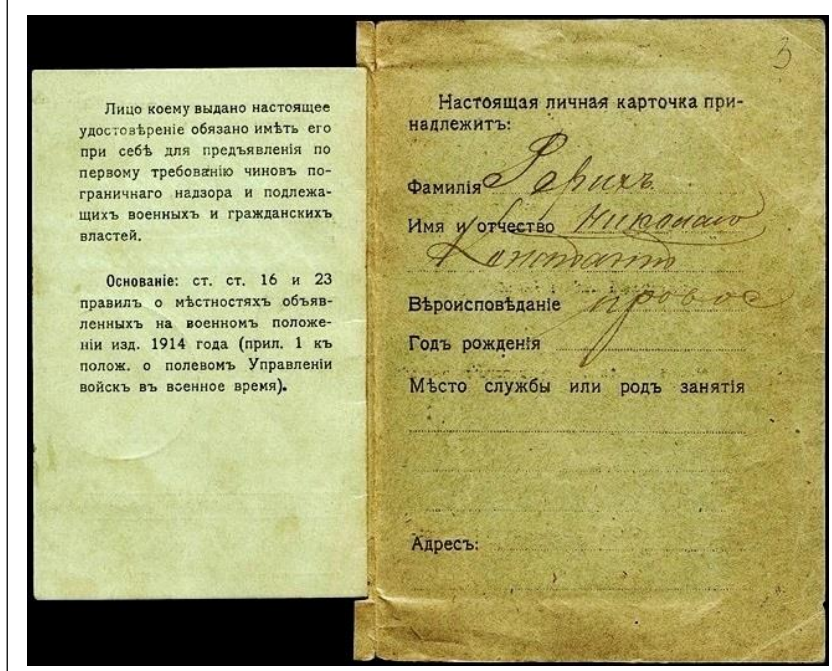 Лицо коему выдано настоящее
удостовѣреніе обязано имѣть его
при себѣ для предъявленія по
первому требованію чиновъ по-
граничнаго надзора и подлежа-
щихъ военныхъ и гражданскихъ
властей.
Основаніе: ст. ст. 16 и 23
правилъ о мѣстностяхъ объяв-
ленныхъ на военномъ положе-
ніи изд. 1914 года (прил. 1 къ
полож. о полевомъ Управленіи
войскъ въ военное время).
3
Настоящая личная карточка при-
надлежитъ:
Фамилія Рерихъ
Имя и отчество Николай
Константи
Вѣроисповѣданіе правос
Годъ рожденія
Мѣсто службы или родъ занятія
Адресъ: